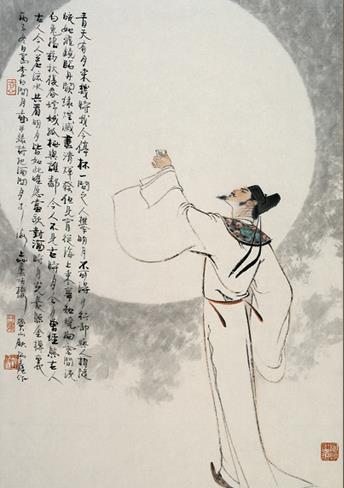 青天有月來幾時我今停杯一問之人攀明月不可得月行卻與人相隨
皎如飛鏡臨丹闕綠煙滅盡清輝發但見宵從海上來寧知曉向雲間沒
白兔搗藥秋復春嫦娥孤棲與誰鄰今人不見古時月今月曾經照古人
古人今人若流水共看明月皆如此唯願當歌對酒時月光長照金樽裏
丙子冬月寫李白問月